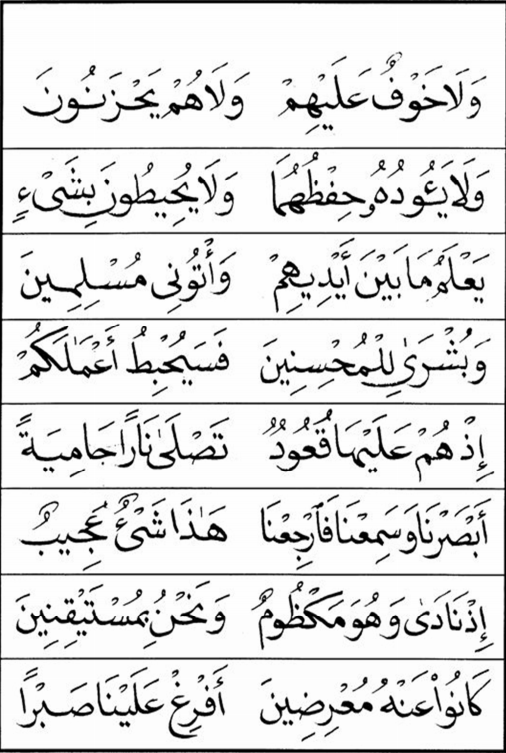 وَلَا خَوْفٌ عَلَيْهِمْ وَلَا هُمْ يَحْزَنُونَ
وَلَا يَـُٔودُهُۥ حِفْظُهُمَا وَلَا يُحِيطُونَ بِشَىْءٍ
يَعْلَمُ مَا بَيْنَ أَيْدِيهِمْ وَأْتُونِى مُسْلِمِينَ
وَبُشْرَىٰ لِلْمُحْسِنِينَ فَسَيُحْبِطُ أَعْمَٰلَكُمْ
إِذْ هُمْ عَلَيْهَا قُعُودٌ تَصْلَىٰ نَارًا حَامِيَةً
أَبْصَرْنَا وَسَمِعْنَا فَٱرْجِعْنَا هَٰذَا شَىْءٌ عَجِيبٌ
إِذْ نَادَىٰ وَهُوَ مَكْظُومٌ وَنَحْنُ بِمُسْتَيْقِنِينَ
كَانُوا۟ عَنْهُ مُعْرِضِينَ أَفْرِغْ عَلَيْنَا صَبْرًا